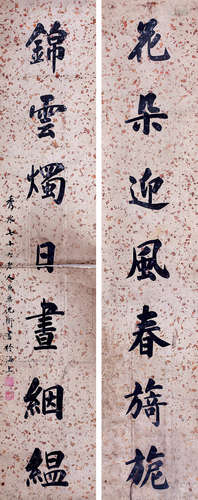 花朵迎風春旖旎
錦雲燭日晝絪縕
秀水七十六老人